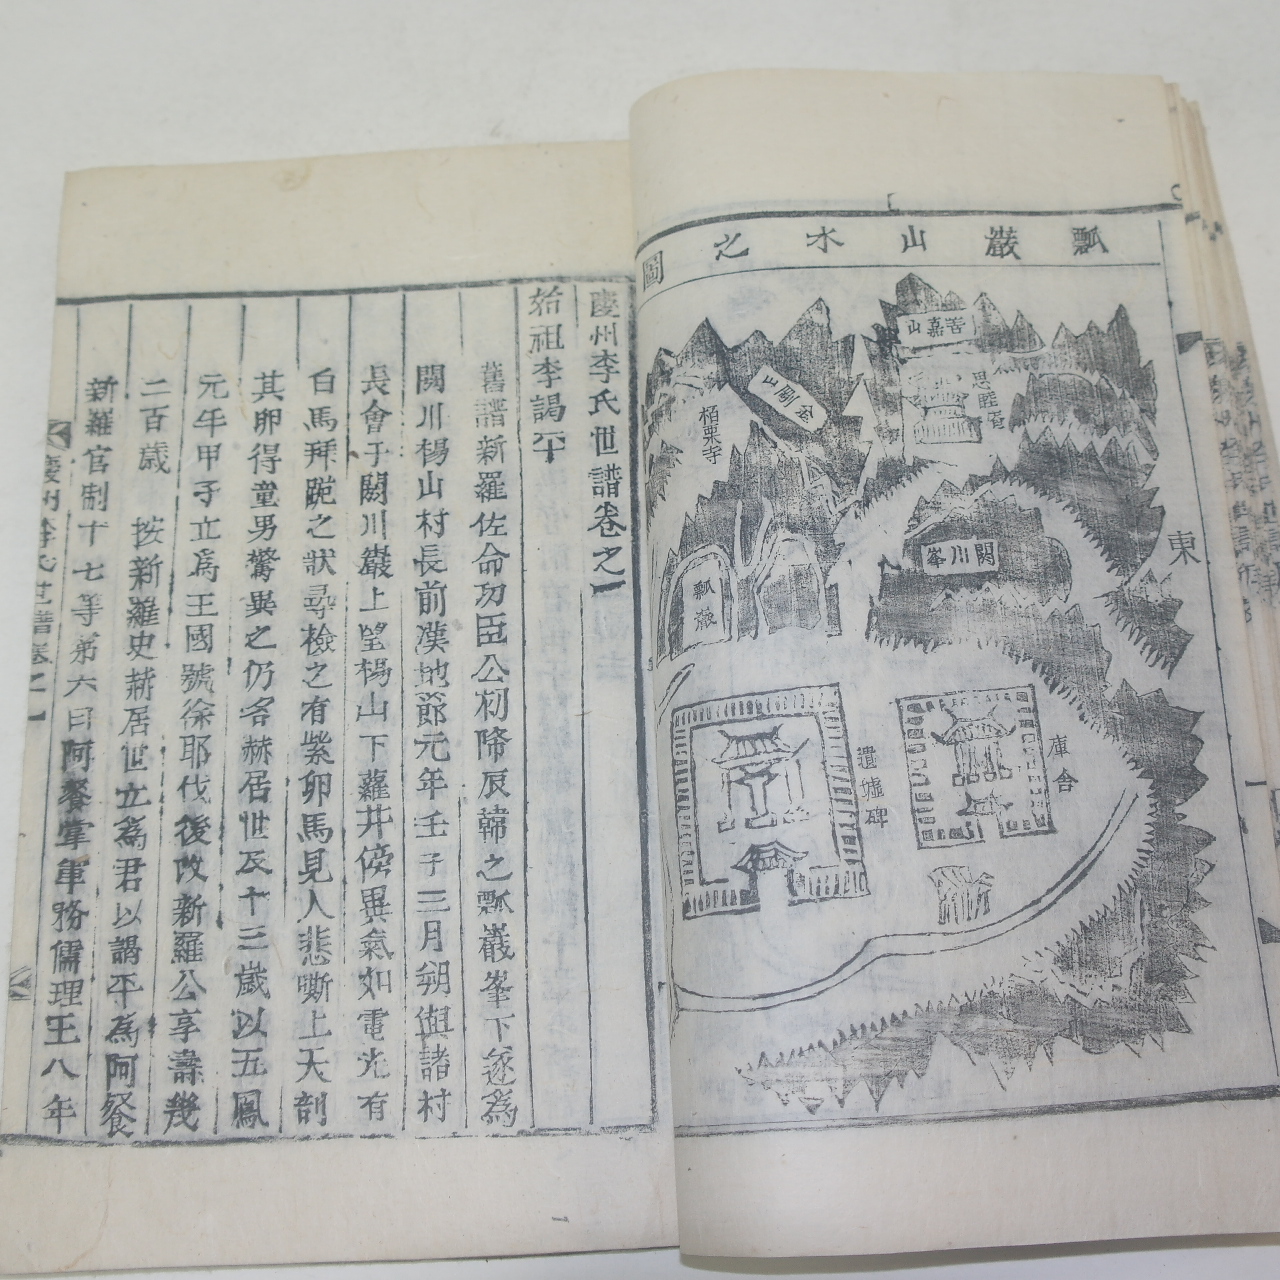 瓢巖山水之圖
東
善嘉山
思睦齋
金剛山
栢栗寺
閼川峯
瓢巖
遺墟碑
庫舍
慶州李氏世譜卷之一
始祖李謁平
舊譜新羅佐命功臣公初降辰韓之瓢巖峯下遂爲
閼川楊山村長前漢地節元年壬子三月朔與諸村
長會于閼川巖上望楊山下蘿井傍異氣如電光有
白馬拜跪之狀尋檢之有紫卵馬見人悲嘶上天剖
其卵得童男驚異之仍名赫居世及十三歲以五鳳
元年甲子立爲王國號徐耶伐後改新羅公享壽幾
二百歲 按新羅史赫居世立爲君以謁平爲阿餐
新羅官制十七等第六曰阿餐掌軍務儒理王八年
慶州李氏世譜卷之一